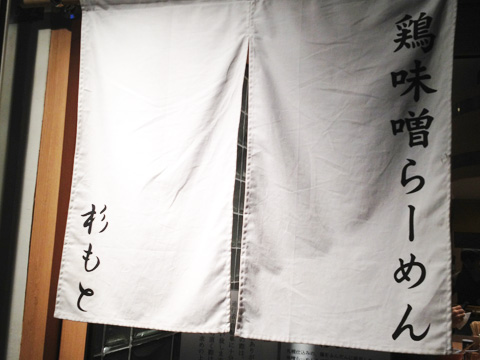 鶏味噌らーめん
杉もと